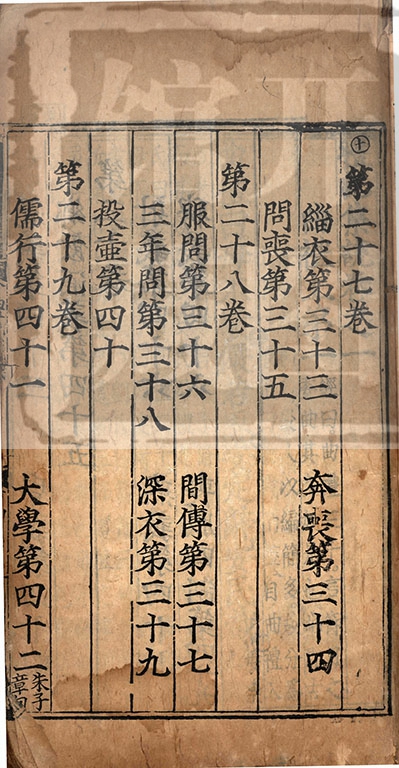 十
第二十七卷
緇衣第三十三 奔喪第三十四
問喪第三十五
第二十八卷
服問第三十六 間傳第三十七
三年問第三十八 深衣第三十九
投壺第四十
第二十九卷
儒行第四十一 大學第四十二 朱子章句